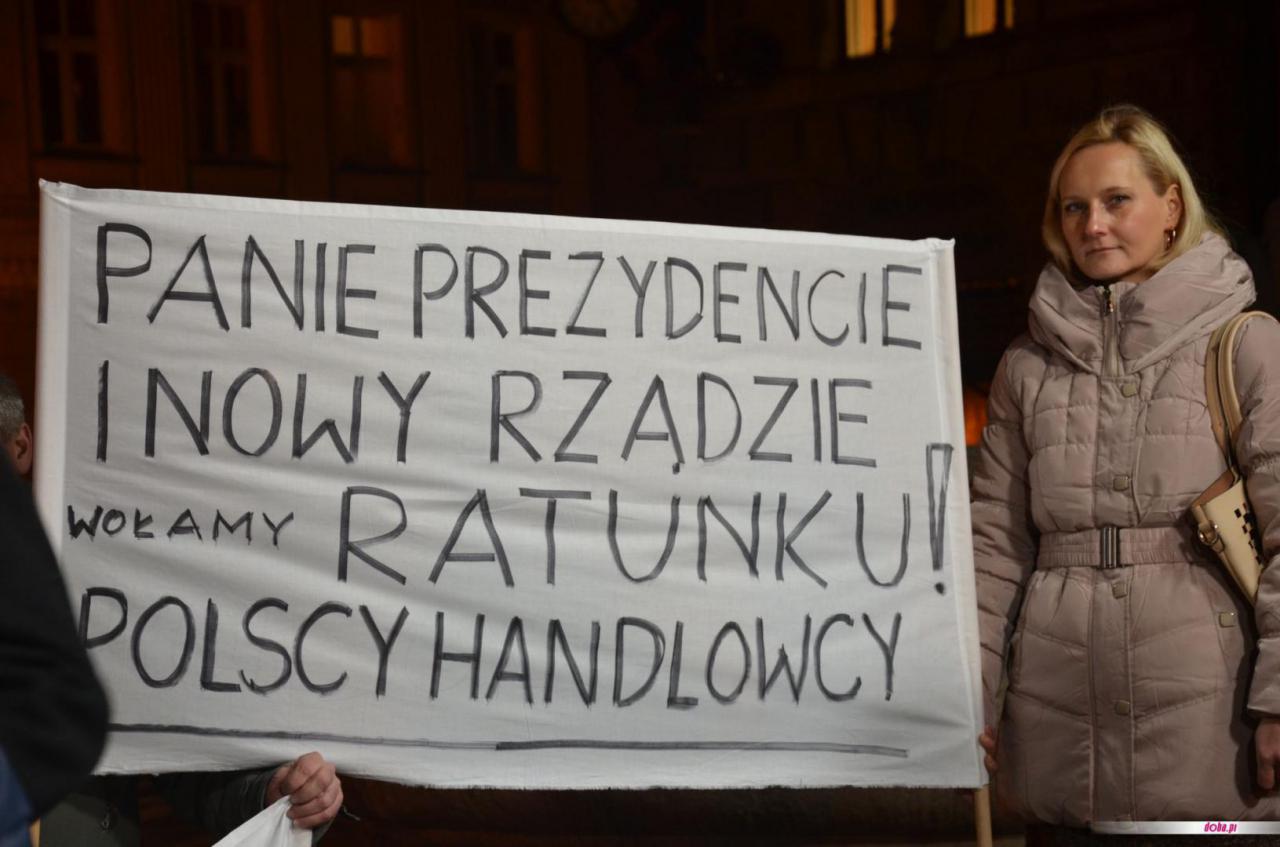 PANIE PREZYDENCIE
I NOWY RZĄDZIE
WOŁAMY RATUNKU!
POLSCY HANDLOWCY
doba.pl